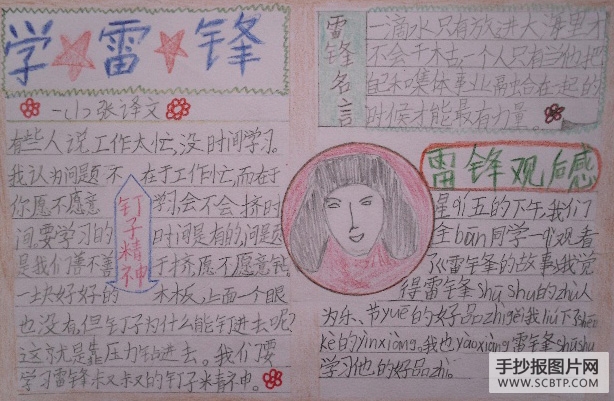 学雷锋
一(1)张译文
有些人说工作太忙,没时间学习。
我认为问题不在于工作忙,而在于
你愿不愿意学习,会不会挤时
间。要学习的时间是有的,问题
是我们善不善于挤,愿不愿意钻
一块好好的木板,上面一个眼
也没有,但钉子为什么能钉进去呢?
这就是靠压力钻进去。我们要
学习雷锋叔叔的钉子精神。
钉子精神
雷锋名言
一滴水只有放进大海里才
不会干枯,一个人只有当他把
自己和集体事业融合在一起的
时候才能最有力量。
雷锋观后感
星期五的下午,我们
全bān同学一
观看
了《雷锋的故事》我觉
得雷锋shū shu的zhù人
为乐、节yuē的好品zhì给我liú下了shēn
kè的yìn xiàng。我也yào xiàng雷锋shū shu
学习他的好品zhì。
手抄报图片网
WWW.SCBTP.COM